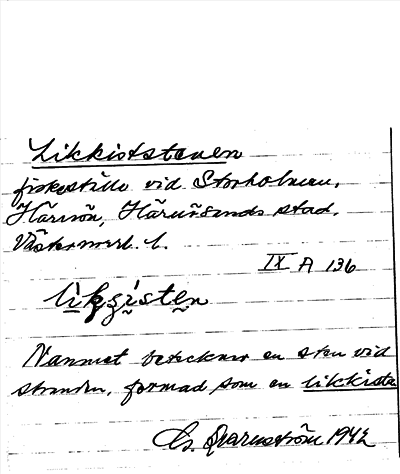 Likkiststenen
fiskeställe vid Storholmen,
Härnön, Härnösands stad.
Västernorrl. l.
IX A 136
Namnet betecknar en sten vid
stranden, formad som en likkista
1942